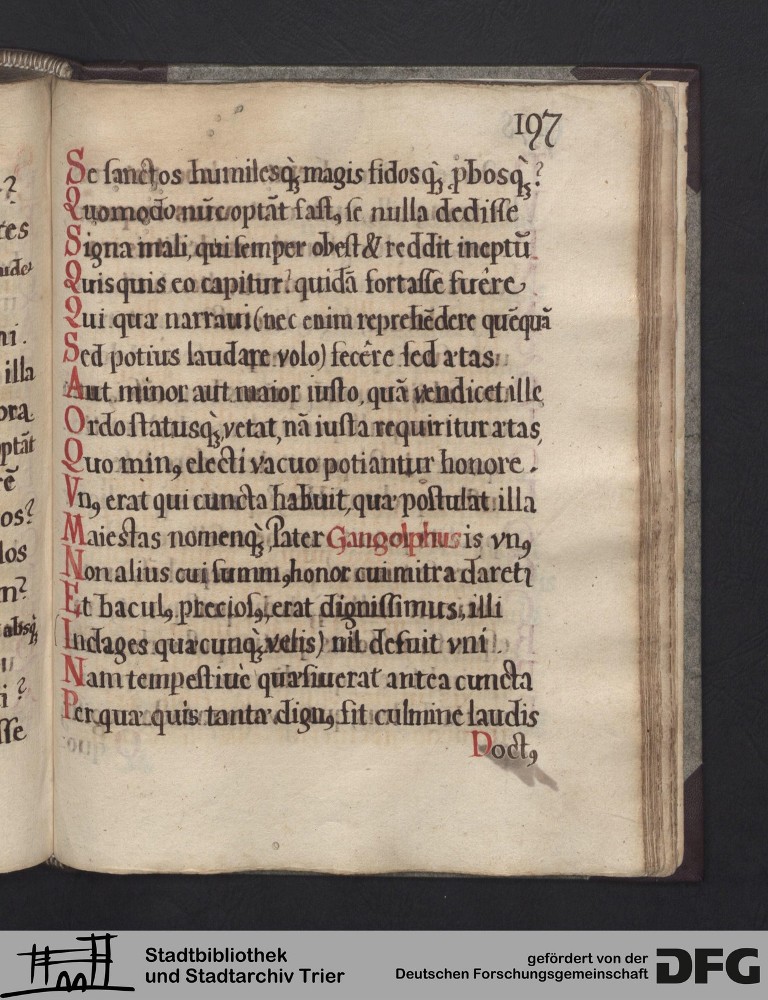 197
Se sanctos humilesq́ꝫ magis fidosq́ꝫ ꝓbosq́ꝫ?
Quomodo nūc optāt fast9 se nulla dedisse
Signa mali, qui semper obest & reddit ineptū
Quisquis eo capitur? quidā fortasse fuêre
Qui quæ narraui (nec enim reprehēdere quēquā
Sed potius laudare volo) fecêre sed ætas
Aut minor aut maior iusto, quā vendicet ille,
Ordo statusq́ꝫ vetat, nā iusta requiritur ætas,
Quo min9 electi vacuo potiantur honore.
Vn9 erat qui cuncta habuit, quæ postulat illa
Maiestas nomenq́ꝫ Pater Gangolphus is vn9
Non alius cui summ9 honor cui mitra daretr
Et bacul9 precios9, erat dignissimus, illi
(Indages quæcunq́ꝫ velis) nil defuit vni.
Nam tempestiuè quæsiuerat antea cuncta
Per quæ quis tantæ dign9 sit culmine laudis
Doct9
tes
ni.
illa
ora
ptāt
rē
os?
los
m?
absq́ꝫ
i?
sse
Stadtbibliothek
und Stadtarchiv Trier
gefördert von der
Deutschen Forschungsgemeinschaft
DFG